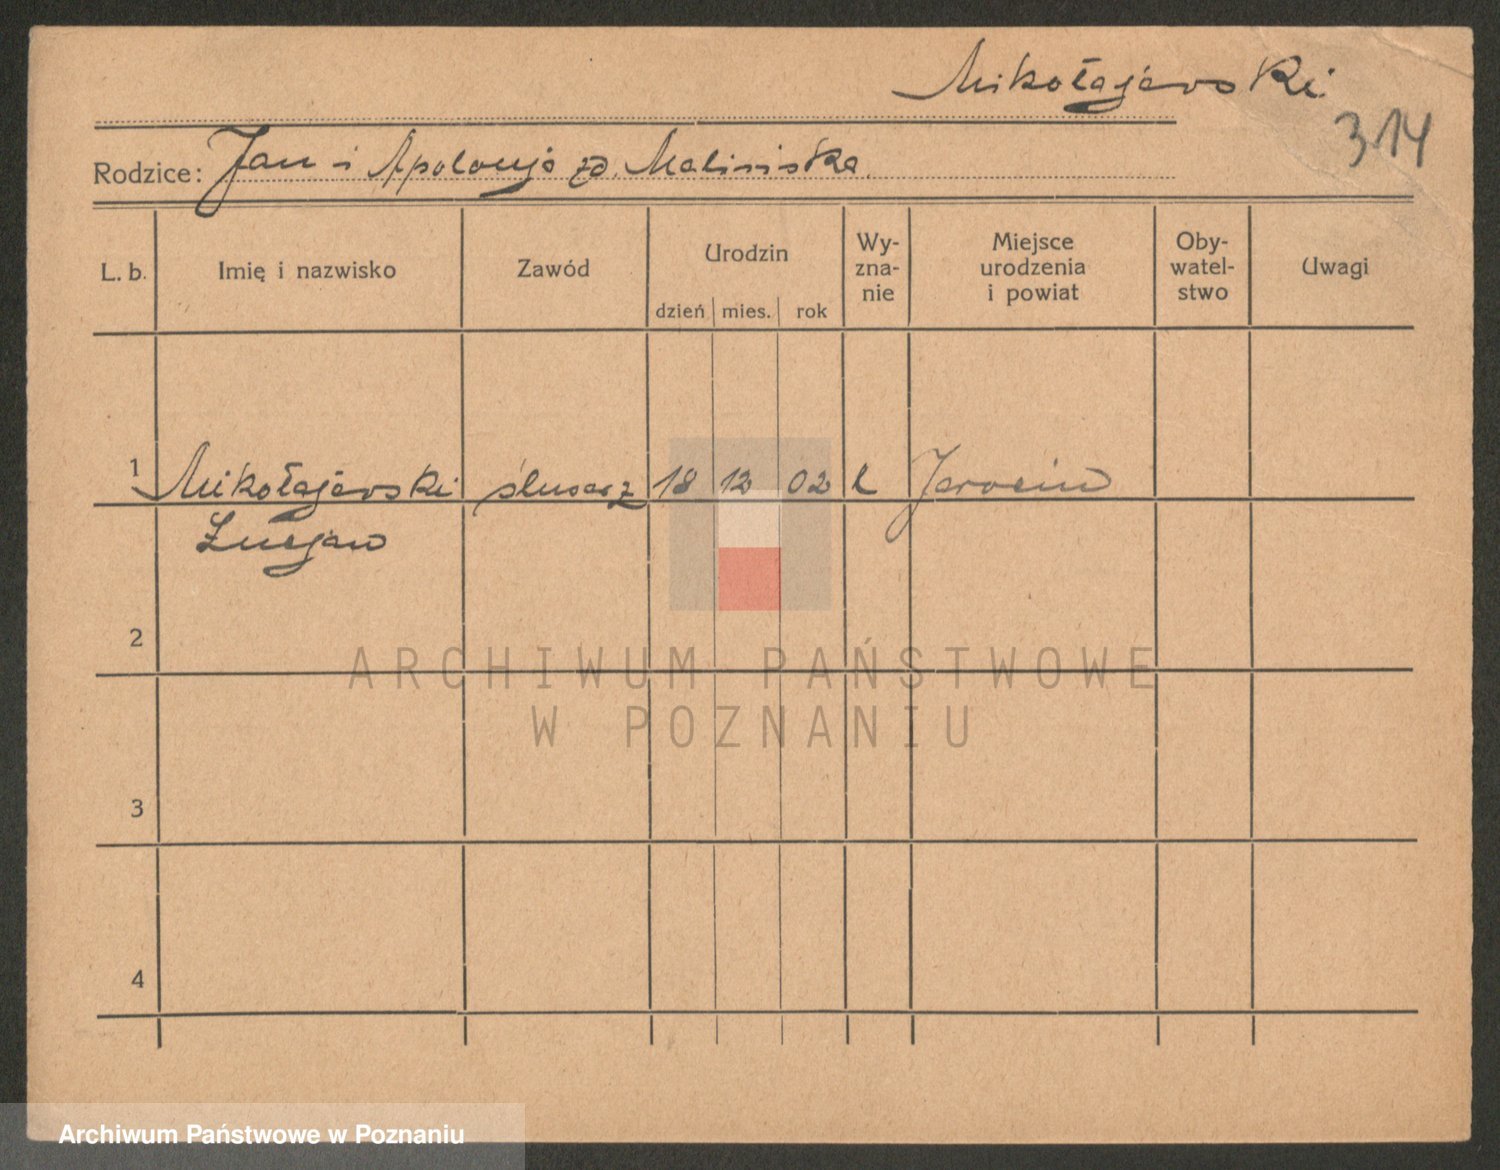 Mikołajewski
314
Rodzice: Jan i Apolonja zd. Malińska
L. b.
Imię i nazwisko
Zawód
Urodzin
dzień
mies.
rok
Wy-
zna-
nie
Miejsce
urodzenia
i powiat
Oby-
watel-
stwo
Uwagi
1 Mikołajewski ślusarz 18 12 02 k Jarocin
Łucjan
2
3
4
ARCHIWUM PAŃSTWOWE
W POZNANIU
Archiwum Państwowe w Poznaniu